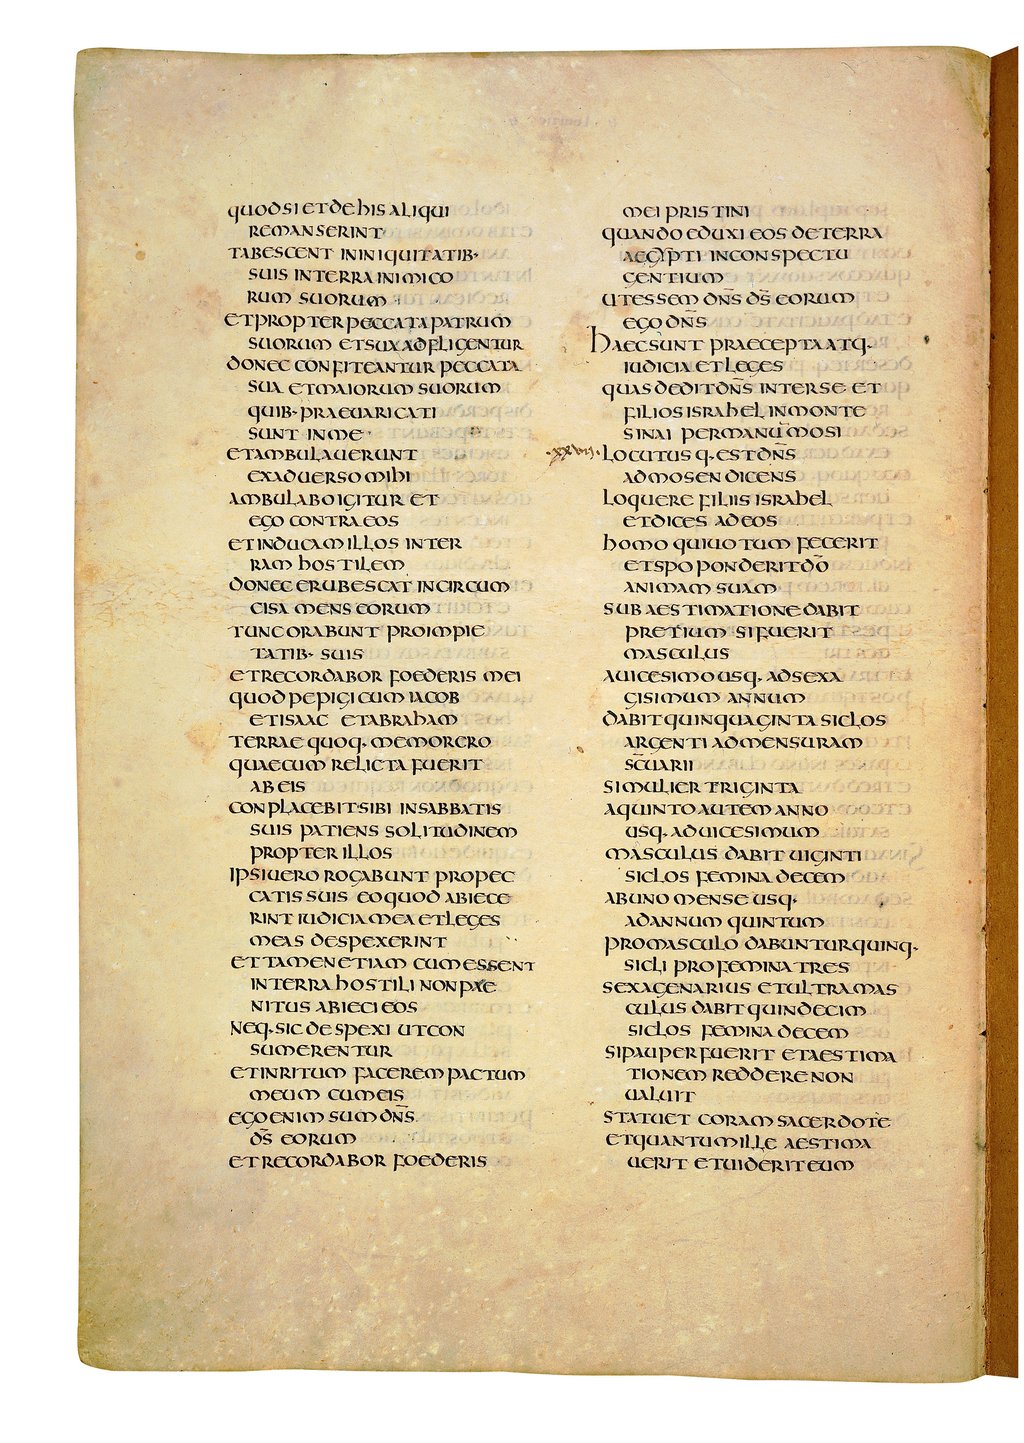 quod si et de his aliqui
remanserint
tabescent in iniquitatib·
suis in terra inimico
rum suorum
et propter peccata patrum
suorum et sua adfligentur
donec confiteantur peccata
sua et maiorum suorum
quib· praevaricati
sunt in me
et ambulaverunt
ex adverso mihi
ambulabo igitur et
ego contra eos
et inducam illos in ter
ram hostilem
donec erubescat incircum
cisa mens eorum
tunc orabunt pro impie
tatib· suis
et recordabor foederis mei
quod pepigi cum iacob
et isaac et abraham
terrae quoq· memorero
quae cum relicta fuerit
ab eis
conplacebit sibi in sabbatis
suis patiens solitudinem
propter illos
ipsi vero rogabunt pro pec
catis suis eo quod abiece
rint iudicia mea et leges
meas despexerint
et tamen etiam cum essent
in terra hostili non pae
nitus abieci eos
neq· sic despexi ut con
sumerentur
et in ritum facerem pactum
meum cum eis
ego enim sum dn̄s
ds̄ eorum
et recordabor foederis
mei pristini
quando eduxi eos de terra
aegypti in conspectu
gentium
ut essem dn̄s ds̄ eorum
ego dn̄s
Haec sunt praecepta atq·
iudicia et leges
quas dedit dn̄s inter se et
filios israhel in monte
sinai per manū mosi
·xxvii· Locutus q· est dn̄s
ad mosen dicens
loquere filiis israhel
et dices ad eos
homo qui votum fecerit
et spoponderit dō
animam suam
sub aestimatione dabit
pretium si fuerit
masculus
a vicesimo usq· ad sexa
gisimum annum
dabit quinquaginta siclos
argenti ad mensuram
sc̄uarii
si mulier triginta
a quinto autem anno
usq· ad vicesimum
masculus dabit viginti
siclos femina decem
ab uno mense usq·
ad annum quintum
pro masculo dabuntur quinq·
sicli pro femina tres
sexagenarius et ultra mas
culus dabit quindecim
siclos femina decem
si pauper fuerit et aestima
tionem reddere non
valuit
statuet coram sacerdote
et quantum ille aestima
verit et viderit eum